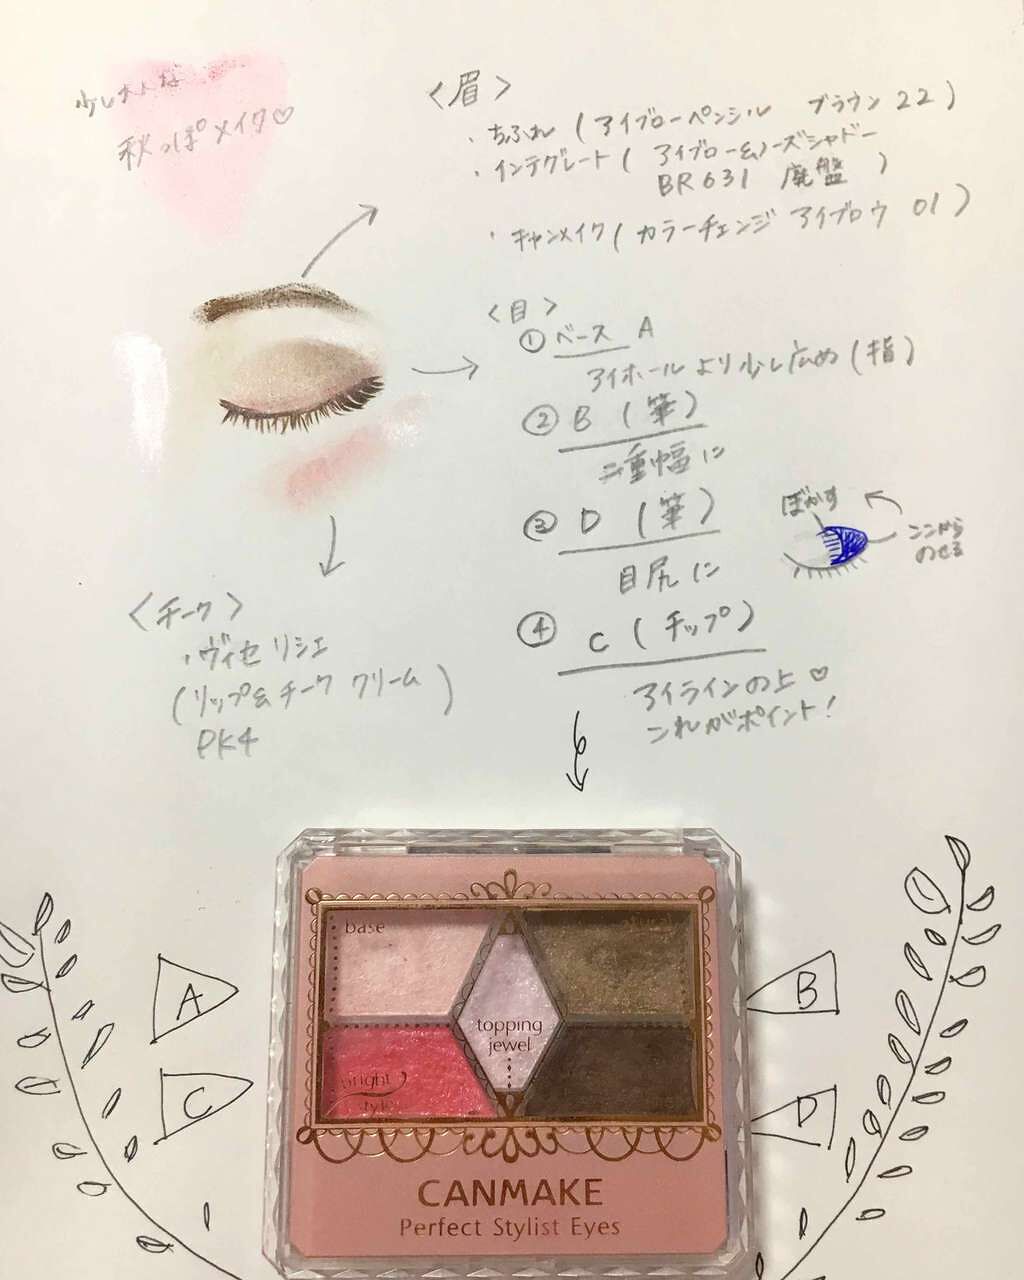 少し大人な
秋っぽメイク♡
〈眉〉
・ちふれ(アイブローペンシル ブラウン22)
・インテグレート(アイブロー&ノーズシャドー
BR631 廃盤)
・キャンメイク(カラーチェンジアイブロウ 01)
〈目〉
① ベース A
アイホールより少し広め(指)
② B (筆)
二重幅に
③ D (筆)
目尻に
ぼかす
ここから
のせる
④ C (チップ)
アイラインの上♡
これがポイント!
〈チーク〉
・ヴィセ リシェ
(リップ&チーク クリーム)
PK4
base
topping
jewel
bright
style
A
B
C
D
CANMAKE
Perfect Stylist Eyes